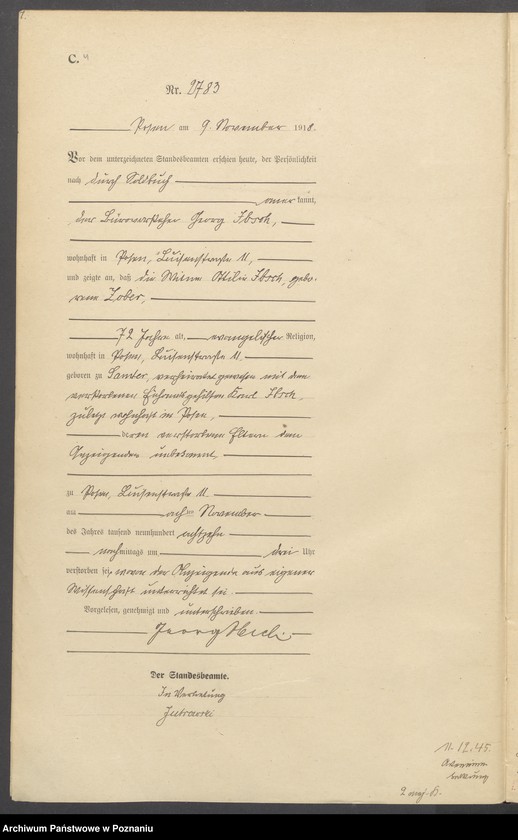 C.
Nr. 2783
Posen am 9. November 1918.
Vor dem unterzeichneten Standesbeamten erschien heute, der Persönlichkeit
nach durch Soldbuch
anerkannt,
der Bürovorsteher Georg Ibsch,
wohnhaft in Posen, Luisenstraße 11,
und zeigte an, daß die Witwe Ottilie Ibsch, gebo-
rene Zober,
72 Jahre alt, evangelischer Religion,
wohnhaft in Posen, Luisenstraße 11
geboren zu Samter, verheiratet gewesen mit dem
verstorbenen Karl Ibsch,
zuletzt wohnhaft in Posen,
deren verstorbene Eltern dem
Anzeigenden unbekannt,
zu Posen, Luisenstraße 11
am achten November
des Jahres tausend neunhundert achtzehn
nachmittags um drei Uhr
verstorben sei, wovon der Anzeigende aus eigener
Wissenschaft unterrichtet sei.
Vorgelesen, genehmigt und unterschrieben.
Georg Ibsch
Der Standesbeamte.
In Vertretung
11.12.45.
Archiwum Państwowe w Poznaniu